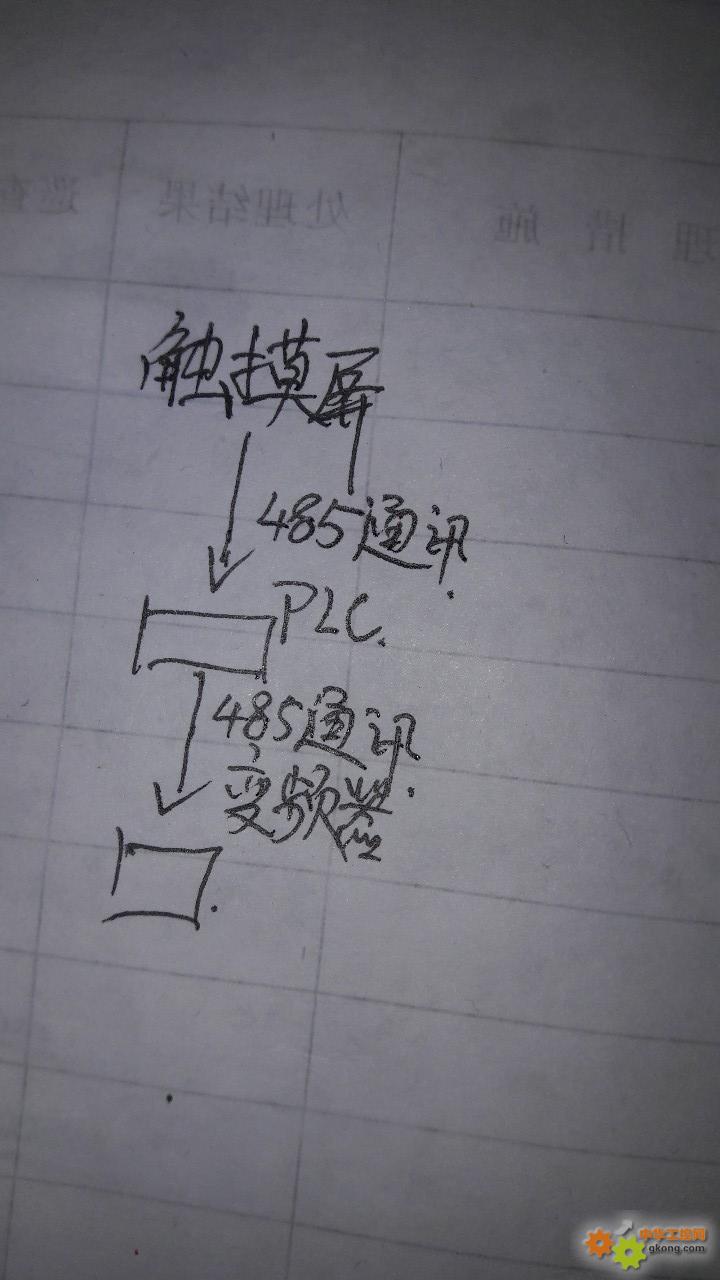 巡查
处理结果
理措施
触摸屏
485通讯.
PLC.
485通讯.
变频器
中华工控网
gkong.com